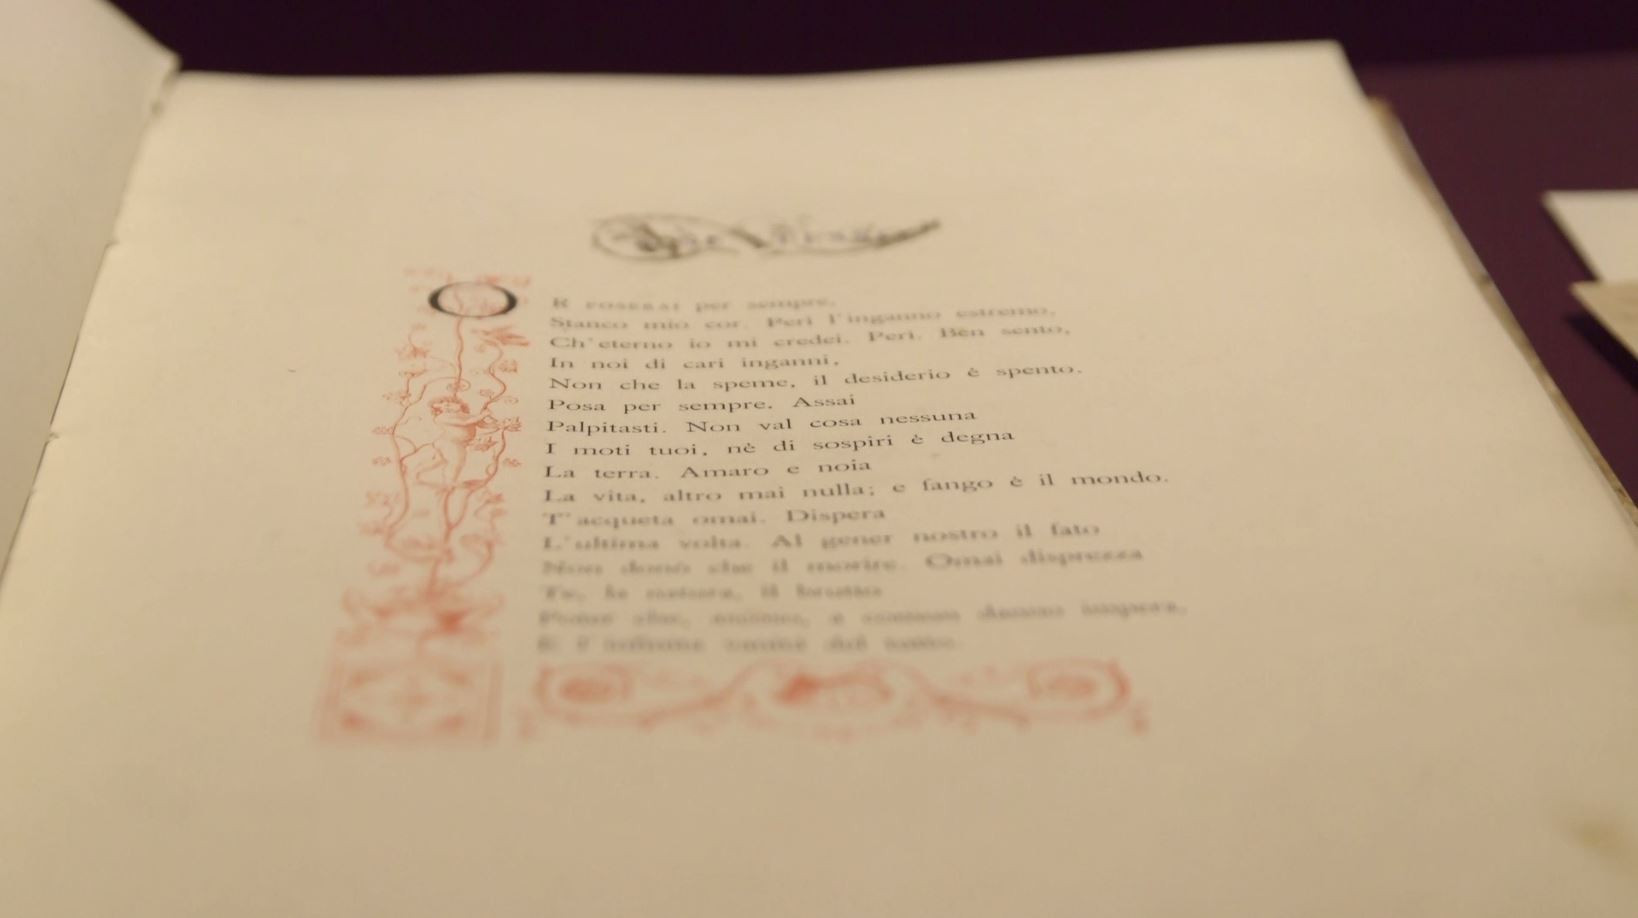 OR POSERAI per sempre,
Stanco mio cor. Perì l'inganno estremo,
Ch'eterno io mi credei. Perì. Ben sento,
In noi di cari inganni,
Non che la speme, il desiderio è spento.
Posa per sempre. Assai
Palpitasti. Non val cosa nessuna
I moti tuoi, nè di sospiri è degna
La terra. Amaro e noia
La vita, altro mai nulla; e fango è il mondo.
T'acqueta omai. Dispera
L'ultima volta. Al gener nostro il fato
Non donò che il morire. Omai disprezza
Te, la natura, il brutto
Poter che, ascoso, a comun danno impera,
E l'infinita vanità del tutto.